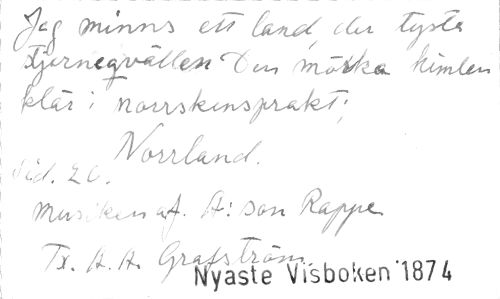 Jag minns ett land, der tysta
stjerneqvällen Den mörka himlen
klär i norrskensprakt;
Norrland.
Sid. 20.
Musiken af. A:son Rappe
Tx. A.A. Grafström
Nyaste Visboken 1874